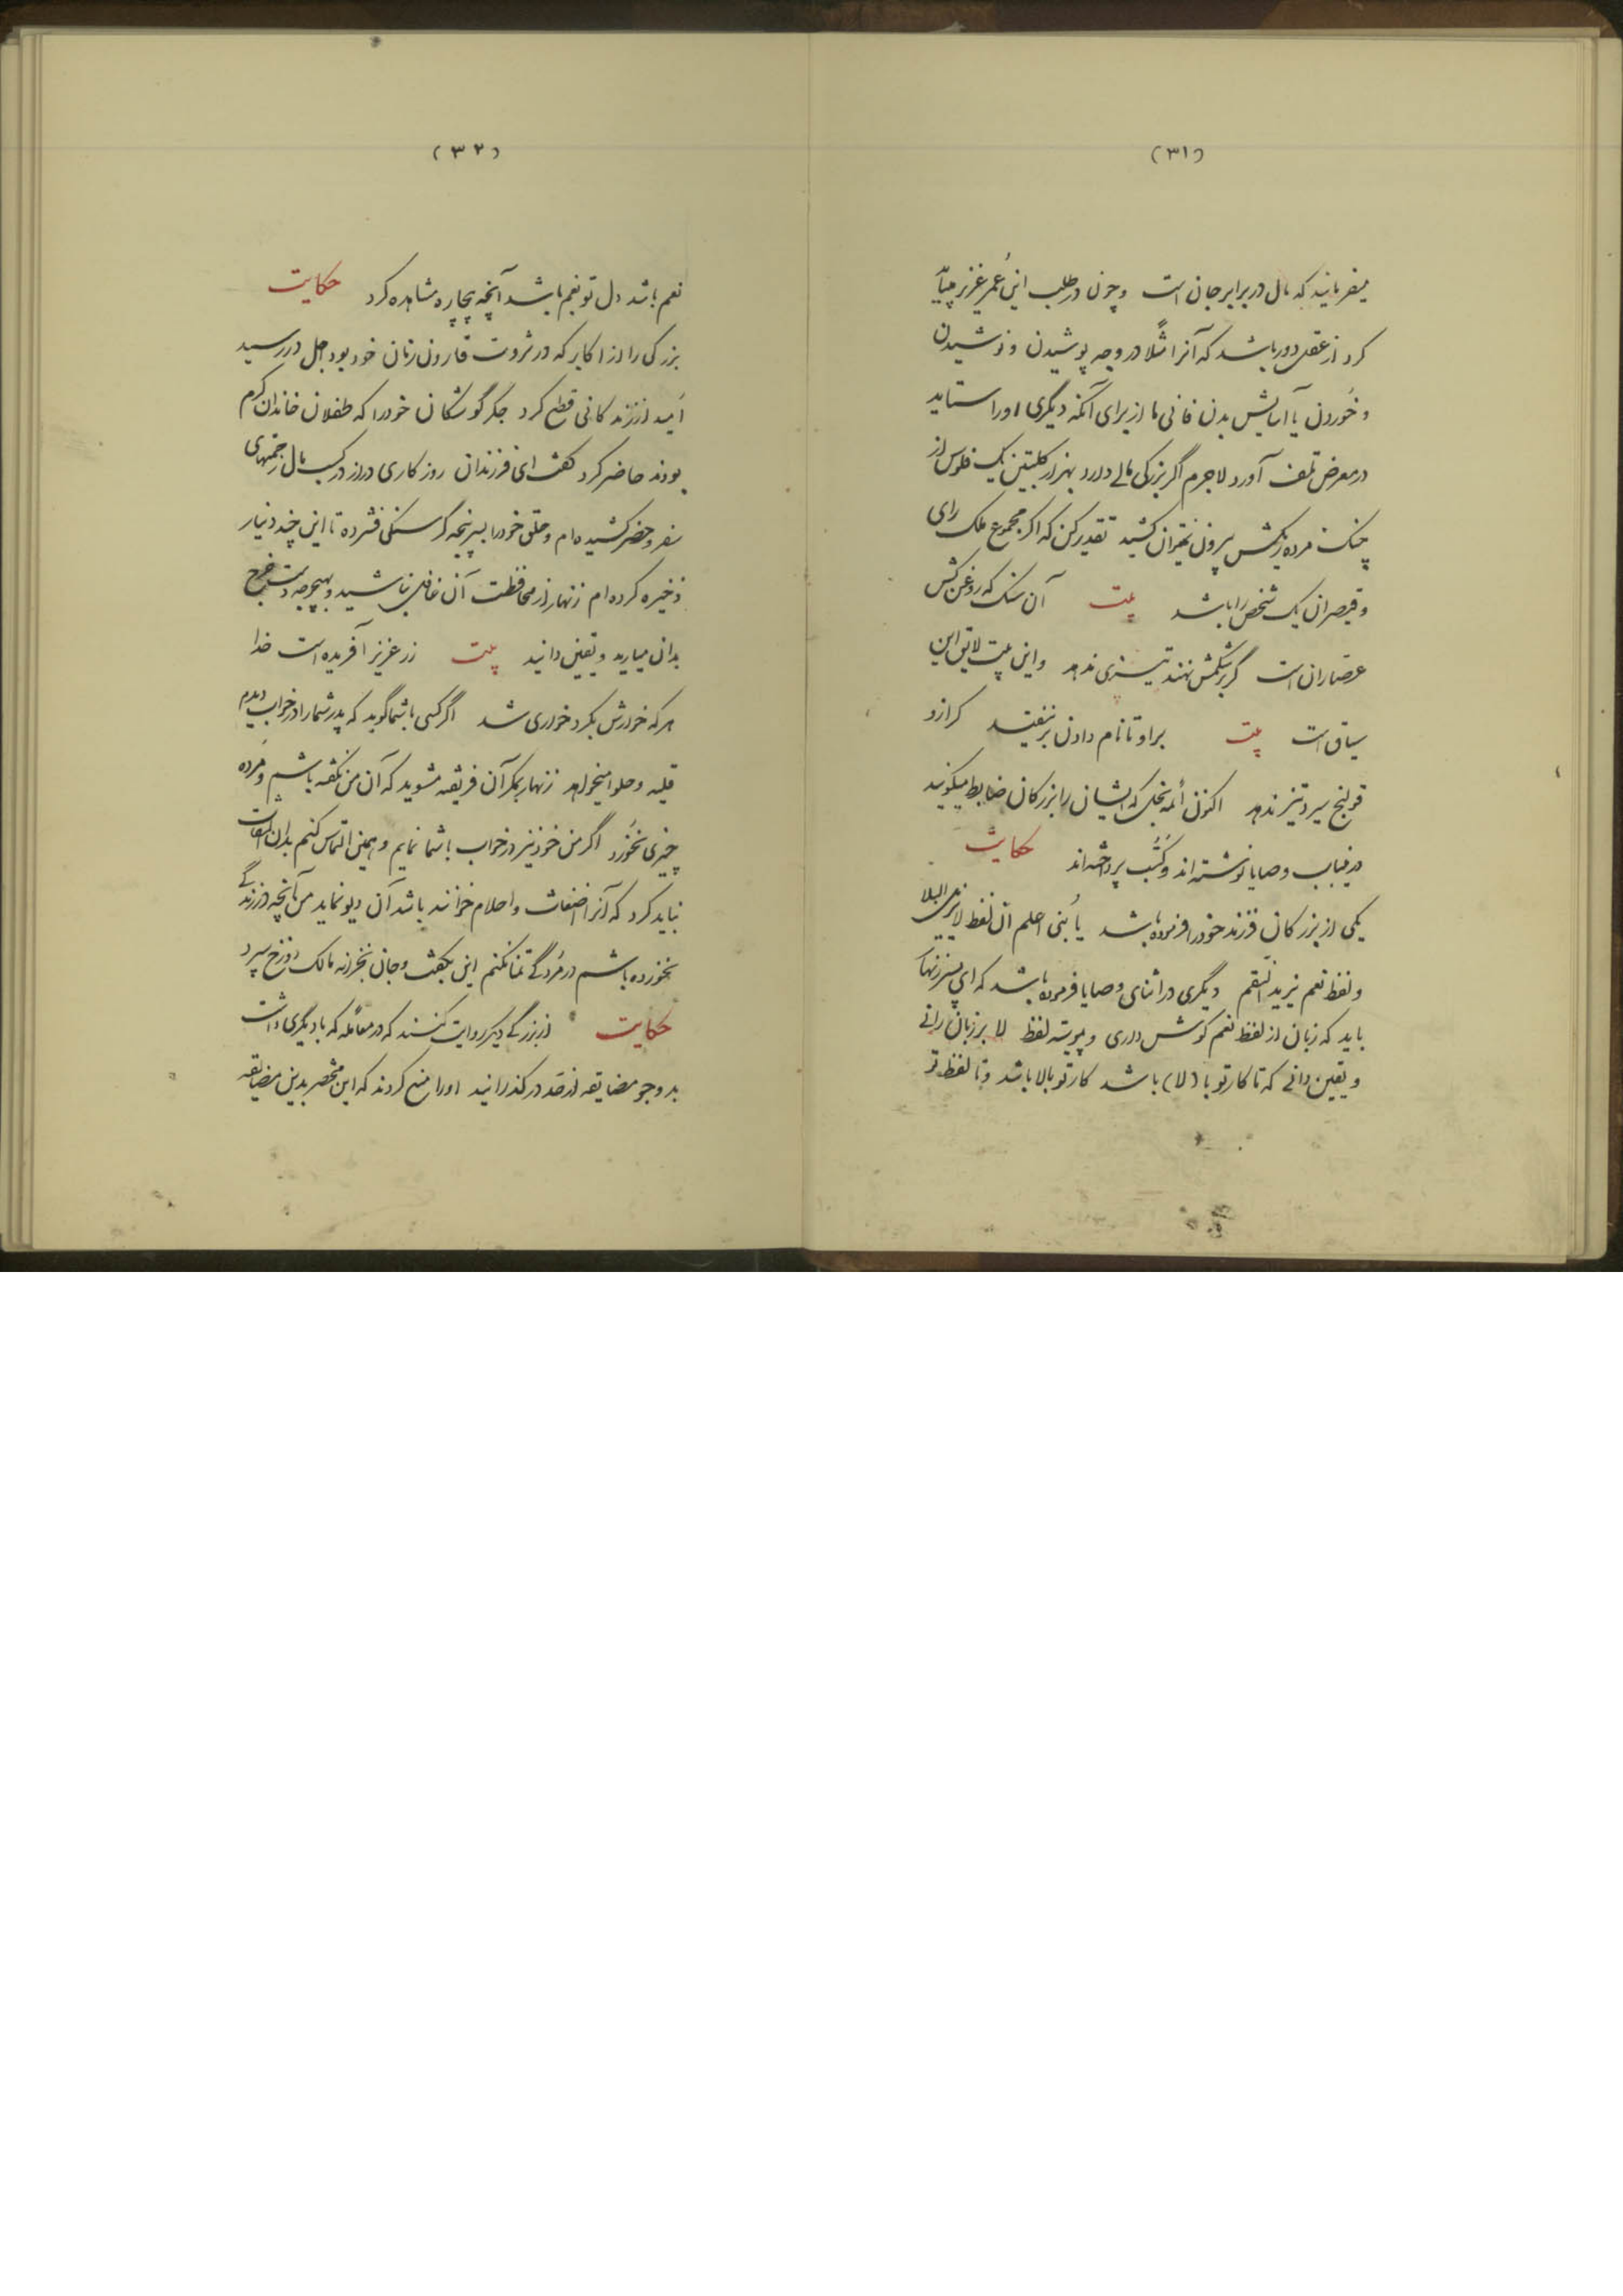 (۳۱)
میفرمایند که مال در برابر جان است وچون در طلب این عُمر عزیز میباید
کرد از عقل دور باشد که آنرا مثلاً در وجه پوشیدن و نوشیدن
و خُوردن یا آسایش بدن فانی یا از برای آنکه دیگری اورا ستاید
در معرض تلف آورد لاجرم اگر بزرکی مالی دارد بهزار کلبتین یک فلوس از
چنک مرده ریکش بیرون نمیتوان کشید تقدیر کن که اکر مجموع ملک رای
و قیصر ان یک شخص را باشد بیت آن سنک که روغن کش
عصّاران است گر بر شکمش نهند تیزی ندهد واین بیت لایق این
سیاق است بیت بر او تا نام دادن بر نیفتد کر از
قولنج میرد تیز ندهد اکنون أئمه بخل که ایشان را بزرکان ضابط میکویند
در اینباب وصایا نوشته اند وکُتُب پرداخته اند حکایت
یکی از بزرکان فرزند خود را فرموده باشد یا بُنی اعلم ان لفظ لا یزیل البلا
و لفظ نعم یزید النّقم دیگری در اثنای وصایا فرموده باشد که ای پسر زنهار
باید که زبان از لفظ نعم کوش داری وپیوسته لفظ لا بر زبان رانی
و یقین دانی که تا کار تو با (لا) باشد کار تو بالا باشد وتا لفظ تو
(۳۲)
نعم باشد دل تو بغم باشد آنچه بیچاره مشاهده کرد حکایت
بزرکی را از اکابر که در ثروت قارون زمان خود بود اجل در رسید
اُمید از زندکانی قطع کرد جکر گوشکان خودرا که طفلان خاندان کرم
بودند حاضر کرد گفت ای فرزندان روزکاری دراز در کسب مال زحمتهای
سفر وحضر کشیده ام وحلق خودرا بسر پنجه گرسنکی فشرده تا این چند دینار
ذخیره کرده ام زنهار از محافظت آن غافل نباشید وبهیچوجه دست خرج
بدان میارید ویقین دانید بیت زر عزیز آفریده است خدا
هر که خوارش بکرد خواری شد اگر کسی باشما گوید که پدر شما را در خواب دیدم
قلیه وحلوا میخواهد زنهار بمکر آن فریفته مشوید که آن من نگفته باشم ومُرده
چیزی نخورد اگر من خود نیز در خواب باشما نمایم وهمین التماس کنم بدان التفات
نباید کرد که آنرا اضغاث واحلام خوانند باشد آن دیو نماید من آنچه در زندگی
نخورده باشم در مُردگی تمنا نکنم این بکفت وجان بخزانه مالک دوزخ سپرد
حکایت از بزرگی دیکر روایت کنند که در معامله که با دیگری داشت
بدو جو مضایقه از حَد در کذرانید اورا منع کردند که این محقّر بدین مضایقه